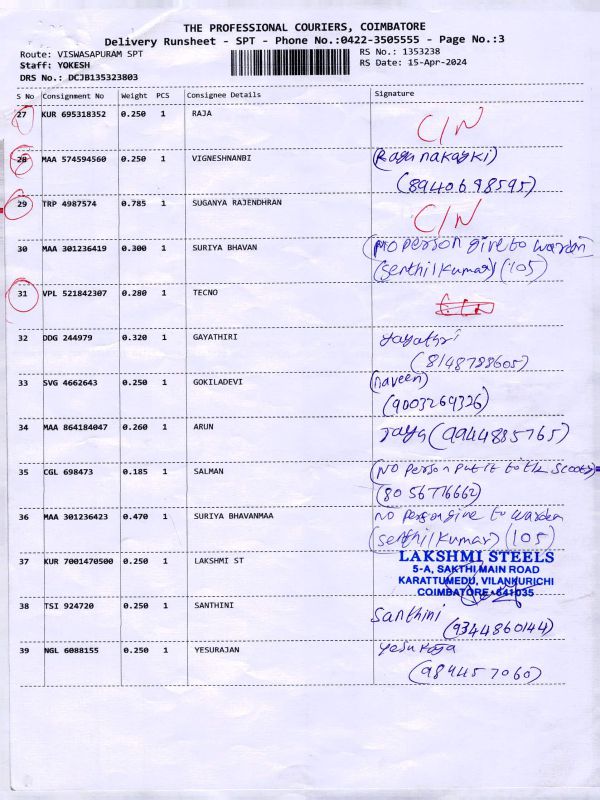 THE PROFESSIONAL COURIERS, COIMBATORE
Delivery Runsheet - SPT - Phone No.:0422-3505555 - Page No.:3
Route: VISWASAPURAM SPT
RS No.: 1353238
Staff: YOKESH
RS Date: 15-Apr-2024
DRS No.: DCJB135323803
S No Consignment No Weight PCS Consignee Details Signature
27 KUR 695318352 0.250 1 RAJA
C/N
28 MAA 574594560 0.250 1 VIGNESHNANBI
(8940698595)
29 TRP 4987574 0.785 1 SUGANYA RAJENDHRAN
C/N
30 MAA 301236419 0.300 1 SURIYA BHAVAN
(NO person give to warden
(Senthil Kumar) (105)
31 VPL 521842307 0.280 1 TECNO
32 DDG 244979 0.320 1 GAYATHIRI
(8148788605)
33 SVG 4662643 0.250 1 GOKILADEVI
(naveen)
(9003269326)
34 MAA 864184047 0.260 1 ARUN
(9944835765)
35 CGL 698473 0.185 1 SALMAN
(NO person put it to the Scooty
(8056776662)
36 MAA 301236423 0.470 1 SURIYA BHAVANMAA
NO person give to warden
(Senthil Kumar) (105)
37 KUR 7001470500 0.250 1 LAKSHMI ST
LAKSHMI STEELS
5-A, SAKTHI MAIN ROAD
KARATTUMEDU, VILANKURICHI
COIMBATORE-641035
38 TSI 924720 0.250 1 SANTHINI
Santhini
(9344860144)
39 NGL 6088155 0.250 1 YESURAJAN
Yesu Raja
(984457060)